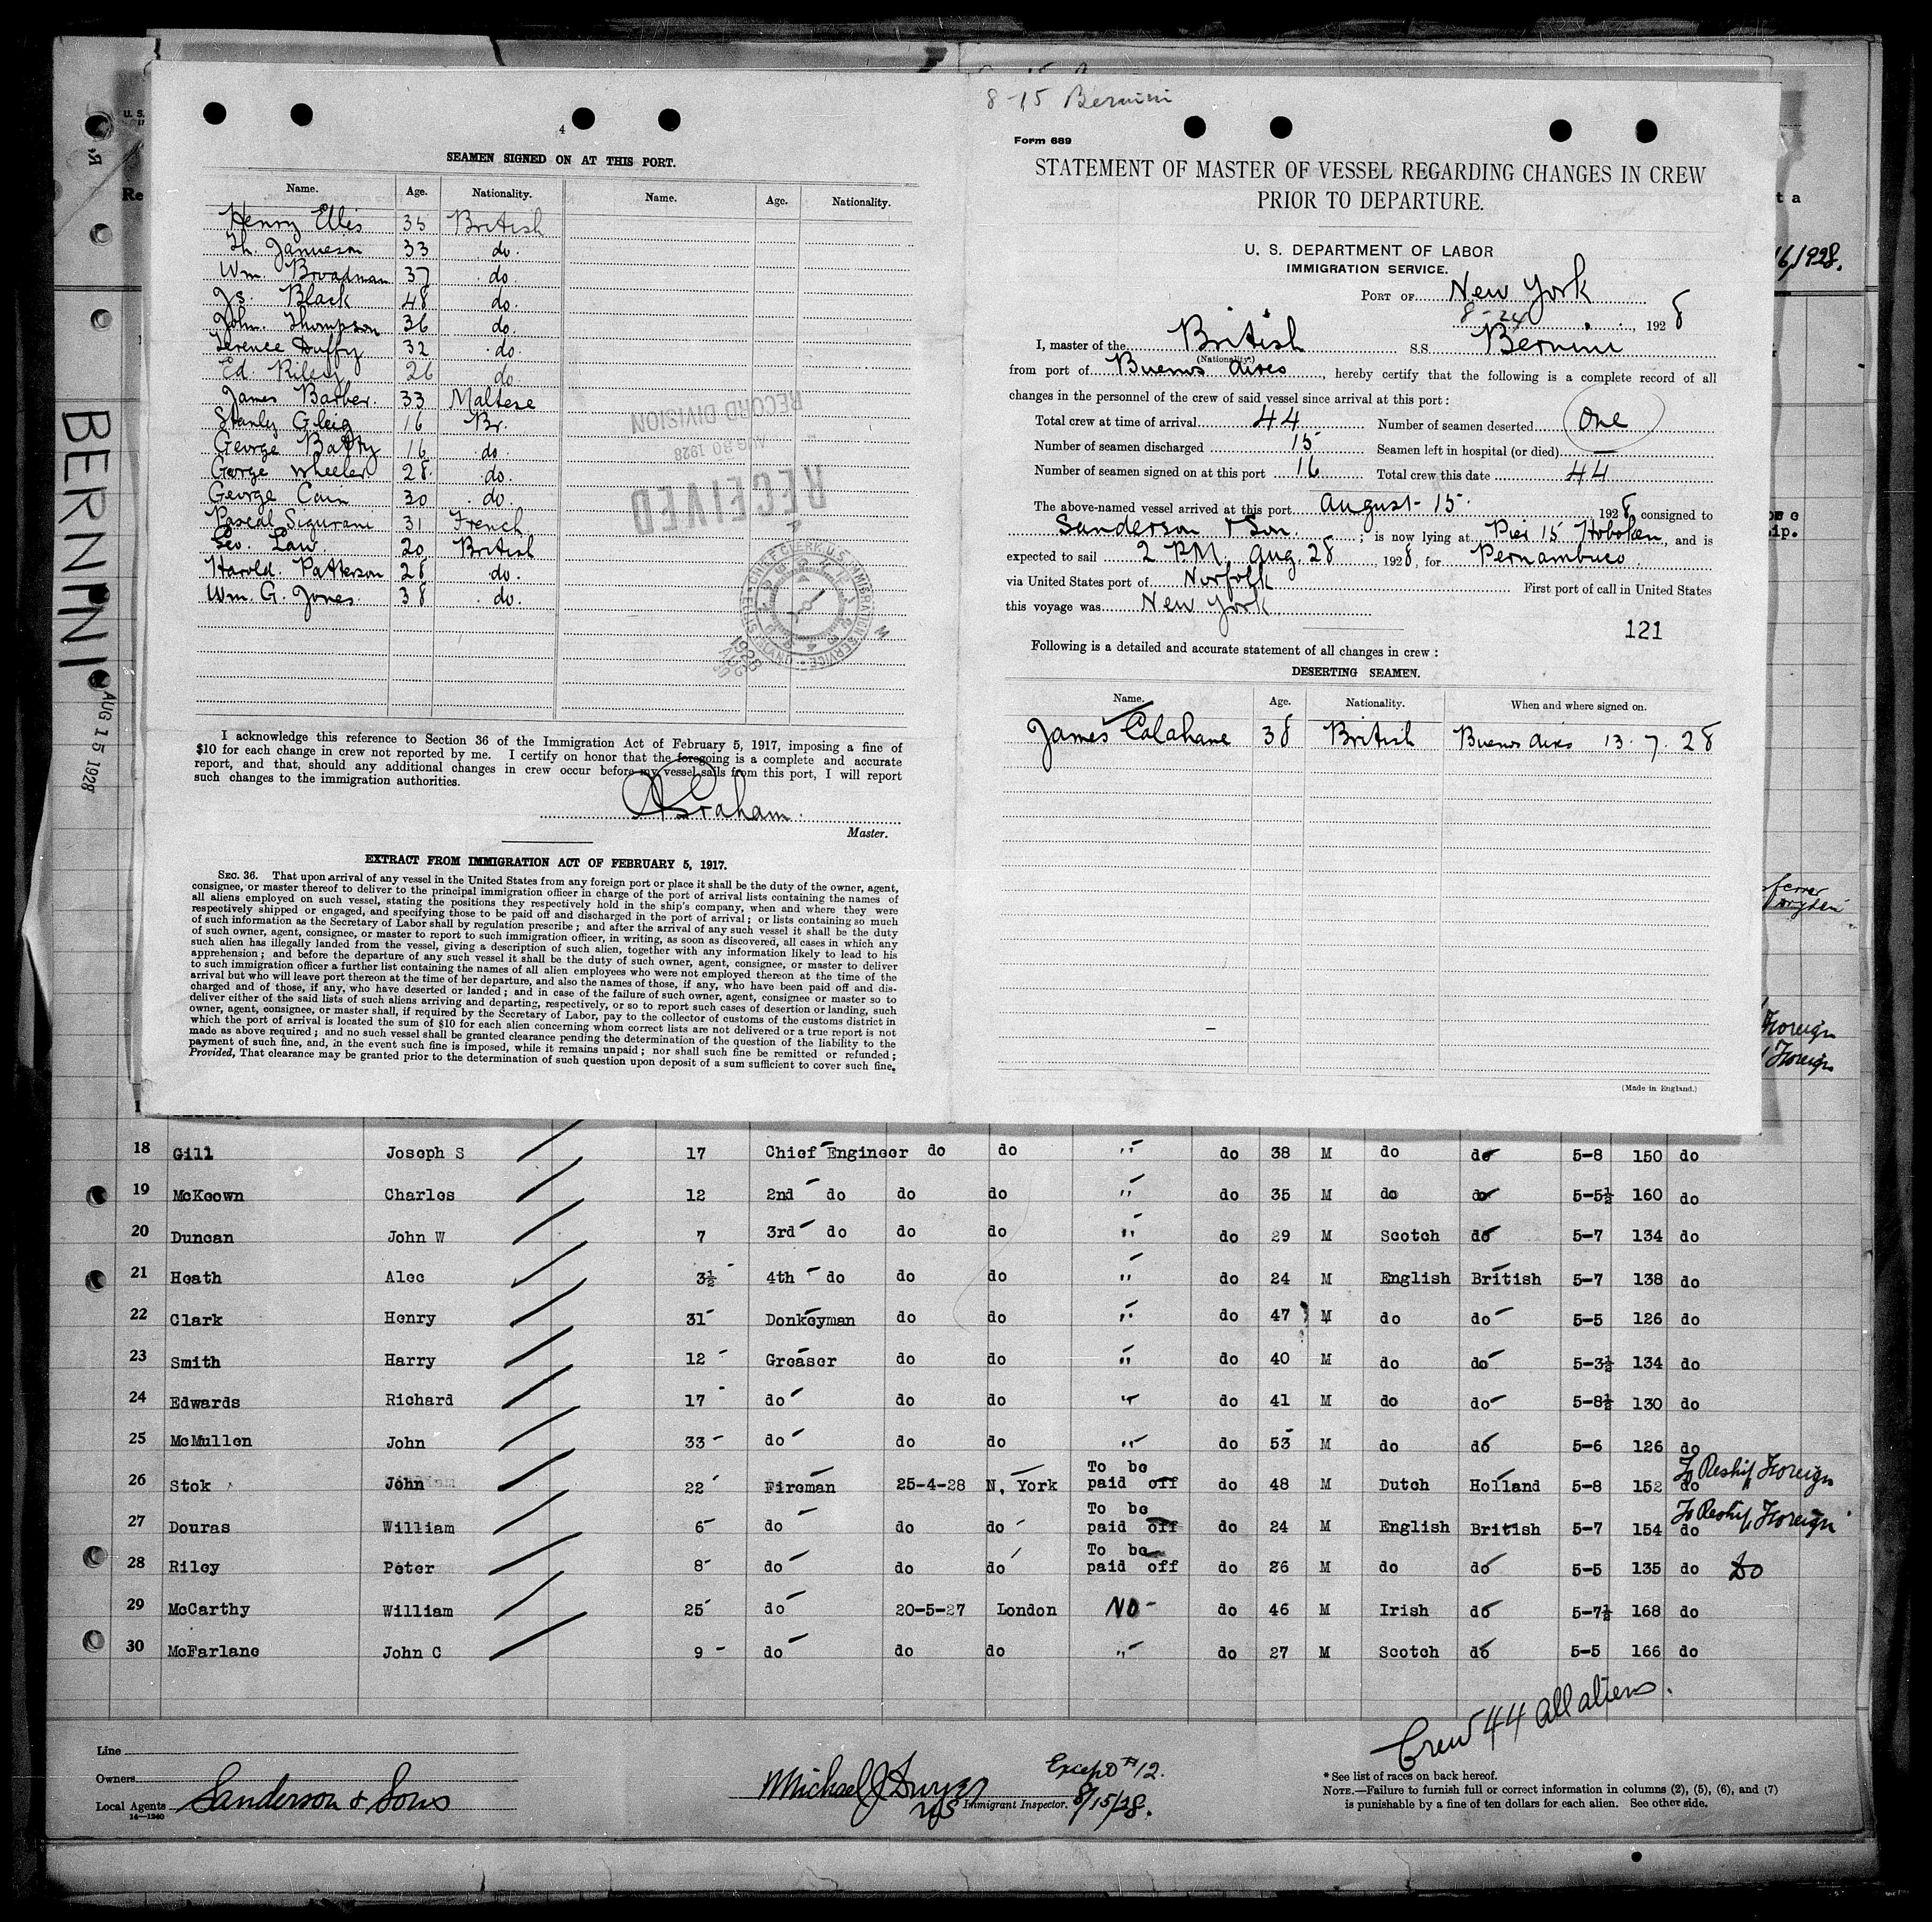 8-15 Bernini
4
SEAMEN SIGNED ON AT THIS PORT.
Name. Age. Nationality. Name. Age. Nationality.
Henry Ellis 35 British
Th. Jamieson 33 do.
Wm. Broadman 37 do
Js. Black 48 do.
John. Thompson 36 do.
Terence Duffy 32 do.
Ed. Riley 26 do.
James Barber. 33 Maltese
Stanly Gleig 16 Br.
George Batty 16 do.
George Wheeler 28 do.
George Cain 30 do.
Pascal Sigurani 31 French
Geo. Law 20 British
Harold. Patterson 28 do.
Wm. G. Jones. 38 do.
RECORD DIVISION
AUG 30 1928
RECEIVED
CHIEF CLERK, U.S. IMMIGRATION SERVICE
ELLIS ISLAND
I acknowledge this reference to Section 36 of the Immigration Act of February 5, 1917, imposing a fine of
$10 for each change in crew not reported by me. I certify on honor that the foregoing is a complete and accurate
report, and that, should any additional changes in crew occur before my vessel sails from this port, I will report
such changes to the immigration authorities.
Graham.
Master.
EXTRACT FROM IMMIGRATION ACT OF FEBRUARY 5, 1917.
SEC. 36. That upon arrival of any vessel in the United States from any foreign port or place it shall be the duty of the owner, agent,
consignee, or master thereof to deliver to the principal immigration officer in charge of the port of arrival lists containing the names of
all aliens employed on such vessel, stating the positions they respectively hold in the ship's company, when and where they were
respectively shipped or engaged, and specifying those to be paid off and discharged in the port of arrival; or lists containing so much
of such information as the Secretary of Labor shall by regulation prescribe; and after the arrival of any such vessel it shall be the duty
of such owner, agent, consignee, or master to report to such immigration officer, in writing, as soon as discovered, all cases in which any
such alien has illegally landed from the vessel, giving a description of such alien, together with any information likely to lead to his
apprehension; and before the departure of any such vessel it shall be the duty of such owner, agent, consignee, or master to deliver
to such immigration officer a further list containing the names of all alien employees who were not employed thereon at the time of the
arrival but who will leave port thereon at the time of her departure, and also the names of those, if any, who have been paid off and dis-
charged and of those, if any, who have deserted or landed; and in case of the failure of such owner, agent, consignee or master so to
deliver either of the said lists of such aliens arriving and departing, respectively, or so to report such cases of desertion or landing, such
owner, agent, consignee, or master, shall, if required by the Secretary of Labor, pay to the collector of customs of the customs district in
which the port of arrival is located the sum of $10 for each alien concerning whom correct lists are not delivered or a true report is not
made as above required; and no such vessel shall be granted clearance pending the determination of the question of the liability to the
payment of such fine, and, in the event such fine is imposed, while it remains unpaid; nor shall such fine be remitted or refunded;
Provided, That clearance may be granted prior to the determination of such question upon deposit of a sum sufficient to cover such fine.
Form 689
STATEMENT OF MASTER OF VESSEL REGARDING CHANGES IN CREW
PRIOR TO DEPARTURE.
U. S. DEPARTMENT OF LABOR
IMMIGRATION SERVICE.
PORT OF New York
8-24, 1928
I, master of the British S.S. Bernini
(Nationality)
from port of Buenos Aires, hereby certify that the following is a complete record of all
changes in the personnel of the crew of said vessel since arrival at this port:
Total crew at time of arrival 44 Number of seamen deserted One
Number of seamen discharged 15 Seamen left in hospital (or died) —
Number of seamen signed on at this port 16 Total crew this date 44
The above-named vessel arrived at this port August - 15. 1928, consigned to
Sanderson & Son.; is now lying at Pier 15 Hoboken, and is
expected to sail 2 P.M. Aug. 28, 1928, for Pernambuco.
via United States port of Norfolk First port of call in United States
this voyage was New York
121
Following is a detailed and accurate statement of all changes in crew:
DESERTING SEAMEN.
Name. Age. Nationality. When and where signed on.
James Calahane 38 British Buenos Aires 13. 7. 28
(Made in England.)
BERNINI
AUG 15 1928
16, 1928.
Foreign
Foreign
18 Gill Joseph S 17 Chief Engineer do do " do 38 M do do 5-8 150 do
19 McKeown Charles 12 2nd do do do " do 35 M do do 5-5½ 160 do
20 Duncan John W 7 3rd do do do " do 29 M Scotch do 5-7 134 do
21 Heath Alec 3½ 4th do do do " do 24 M English British 5-7 138 do
22 Clark Henry 31 Donkeyman do do " do 47 M do do 5-5 126 do
23 Smith Harry 12 Greaser do do " do 40 M do do 5-3½ 134 do
24 Edwards Richard 17 do do do " do 41 M do do 5-8½ 130 do
25 McMullen John 33 do do do " do 53 M do do 5-6 126 do
26 Stok John 22 Fireman 25-4-28 N. York To be paid off do 48 M Dutch Holland 5-8 152 do To Reship Foreign
27 Douras William 6 do do do To be paid off do 24 M English British 5-7 154 do To Reship Foreign
28 Riley Peter 8 do do do To be paid off do 26 M do do 5-5 135 do Do
29 McCarthy William 25 do 20-5-27 London NO do 46 M Irish do 5-7½ 168 do
30 McFarlane John C 9 do do do " do 27 M Scotch do 5-5 166 do
Crew 44 all aliens.
Except #12.
Line
Owners
Local Agents Sanderson & Sons
14-1240
Michael J Dwyer
Immigrant Inspector. 8/15/28.
* See list of races on back hereof.
NOTE.—Failure to furnish full or correct information in columns (2), (5), (6), and (7)
is punishable by a fine of ten dollars for each alien. See other side.